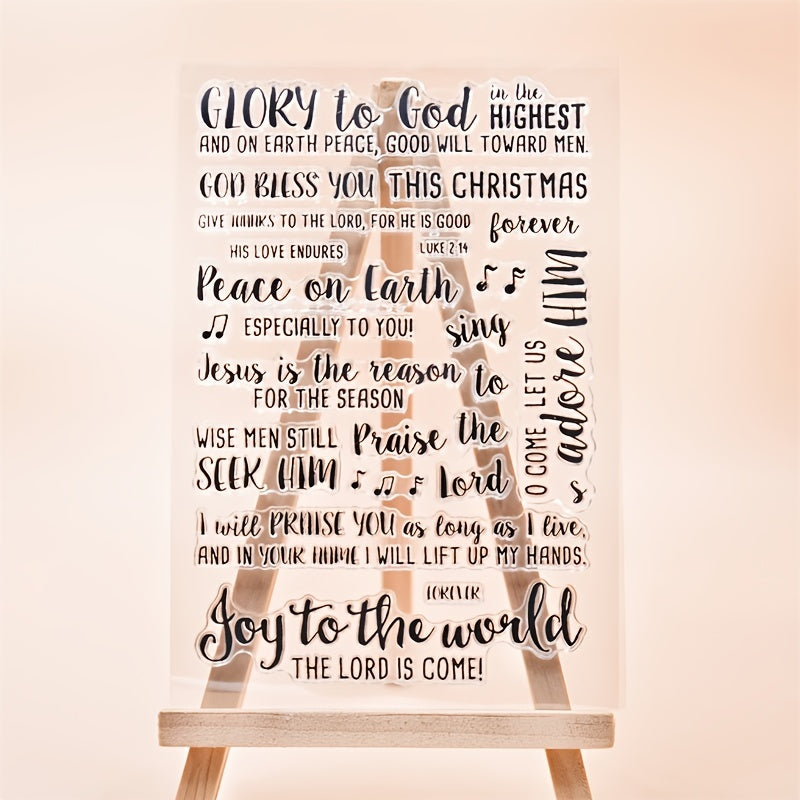 GLORY to God in the HIGHEST
AND ON EARTH PEACE, GOOD WILL TOWARD MEN.
GOD BLESS YOU THIS CHRISTMAS
GIVE THANKS TO THE LORD, FOR HE IS GOOD
forever
HIS LOVE ENDURES
LUKE 2:14
Peace on Earth
ESPECIALLY TO YOU!
sing
Jesus is the reason
FOR THE SEASON
to
WISE MEN STILL
SEEK HIM
Praise the
Lord
O COME LET US
adore HIM
s
I will PRAISE YOU as long as I live,
AND IN YOUR NAME I WILL LIFT UP MY HANDS.
FOREVER
Joy to the world
THE LORD IS COME!